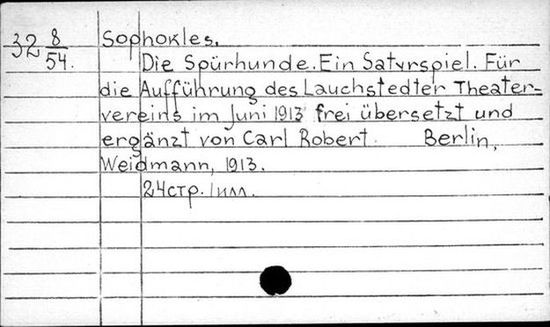 32 8/54. Sophokles.
Die Spürhunde. Ein Satyrspiel. Für
die Aufführung des Lauchstedter Theater-
vereins im Juni 1913 frei übersetzt und
ergänzt von Carl Robert. Berlin,
Weidmann, 1913.
24стр. /илл.